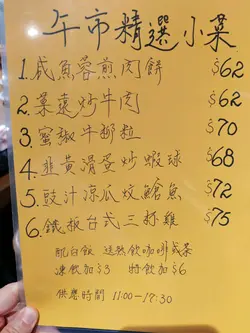 午市精選小菜
1. 咸魚蓉煎肉餅 $62
2. 菜遠炒牛肉 $62
3. 蜜椒牛柳粒 $70
4. 韭黃滑蛋炒蝦球 $68
5. 豉汁涼瓜炆鱔魚 $72
6. 鐵板台式三杯雞 $75
配白飯 送熱飲咖啡或茶
凍飲加$3 特飲加$6
供應時間 11:00-17:30